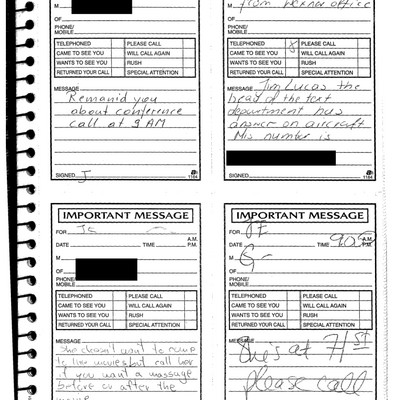 M
OF
PHONE/
MOBILE
TELEPHONED PLEASE CALL
CAME TO SEE YOU WILL CALL AGAIN
WANTS TO SEE YOU RUSH
RETURNED YOUR CALL SPECIAL ATTENTION
MESSAGE
Remanid you
about conference
call at 9 AM
SIGNED J
1184
from Wexner office
OF
PHONE/
MOBILE
TELEPHONED X PLEASE CALL
CAME TO SEE YOU WILL CALL AGAIN
WANTS TO SEE YOU RUSH
RETURNED YOUR CALL SPECIAL ATTENTION
MESSAGE Jim Lucas the
head of the text
department has
answer on aircraft
His number is
SIGNED
1184
IMPORTANT MESSAGE
FOR JE
DATE TIME A.M.
P.M.
M
OF
PHONE/
MOBILE
TELEPHONED PLEASE CALL
CAME TO SEE YOU WILL CALL AGAIN
WANTS TO SEE YOU RUSH
RETURNED YOUR CALL SPECIAL ATTENTION
MESSAGE
She doesn't want to come
to the movies but call her
if you want a massage
before or after the
IMPORTANT MESSAGE
FOR JE
DATE TIME A.M.
P.M.
M G-
OF
PHONE/
MOBILE
TELEPHONED PLEASE CALL
CAME TO SEE YOU WILL CALL AGAIN
WANTS TO SEE YOU RUSH
RETURNED YOUR CALL SPECIAL ATTENTION
MESSAGE
She's at 71st
please call